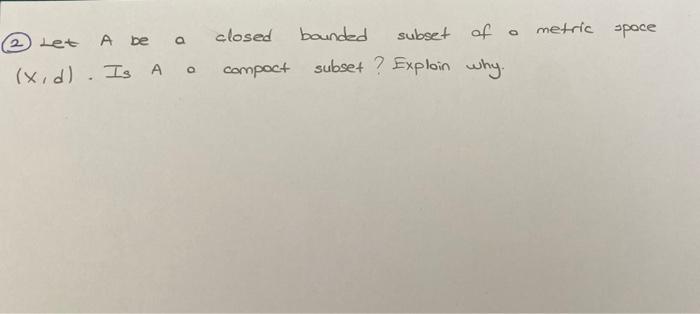 ② Let A be a closed bounded subset of a metric space
(X,d). Is A a compact subset? Explain why.